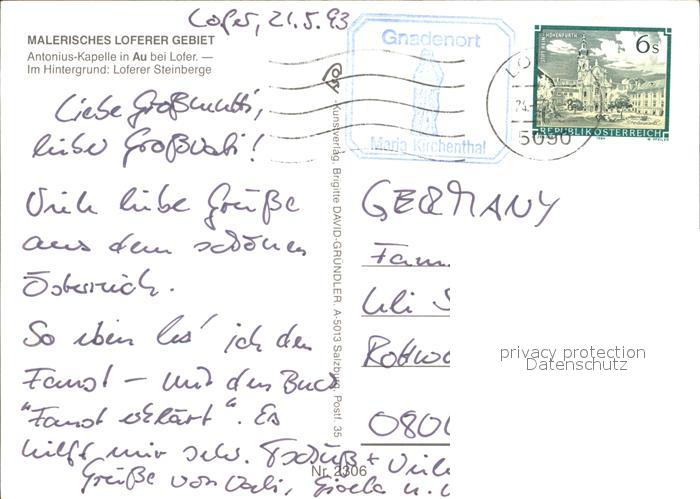 Lofer, 21.5.93
MALERISCHES LOFERER GEBIET
Antonius-Kapelle in Au bei Lofer. —
Im Hintergrund: Loferer Steinberge
Liebe Großmutti,
lieber Großvati!
Viele liebe Grüße
aus dem schönen
Österreich.
So eben les' ich den
Faust – mit dem Buch
"Faust erklärt". Es
hilft mir sehr. Tschüß + Viele
Grüße von Vati, Gisela u.
Kunstverlag Brigitte DAVID-GRÜNDLER A-5013 Salzburg, Postf. 35
Nr. 2306
Gnadenort
Maria Kirchenthal
STIFT REIN-HOHENFURTH
6s
REPUBLIK ÖSTERREICH
5090
GERMANY
Fam.
Uli S
0801
privacy protection
Datenschutz